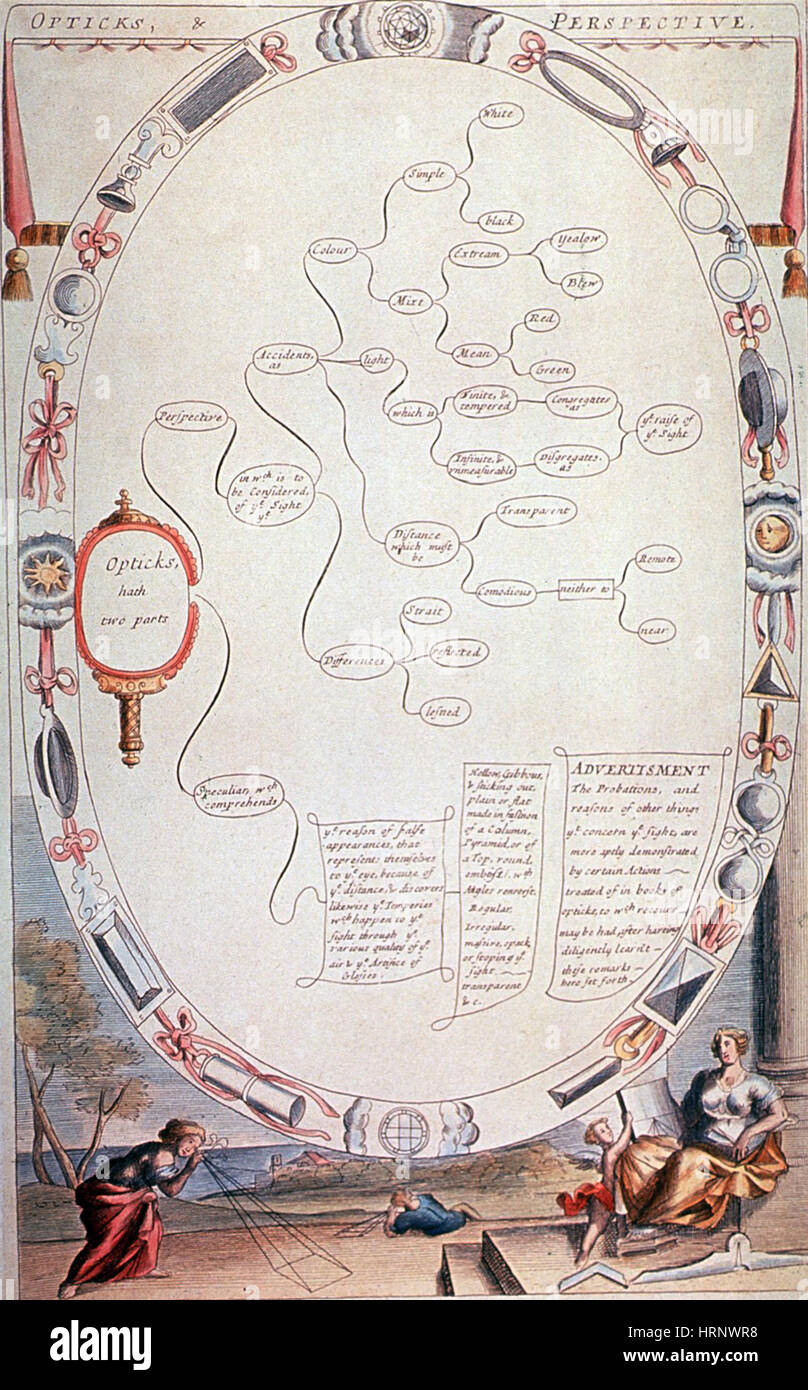 OPTICKS, & PERSPECTIVE.
White
Simple
black
Colour
Extream
Yealow
Blew
Mixt
Red
Mean
Green
Accidents,
as
light
which is
Finite, &
tempered
Congregates
as
yᵉ raise of
yᵉ Sight
Infinite, &
vnmeasurable
Disgregates,
as
Perspective
in wᶜʰ is to
be Considered,
of yᵉ Sight
yᵉ
Transparent
Distance
which must
be
Comodious
neither to
Remote
near
Opticks,
hath
two parts
Strait
Differences
reflected
lesned
Specularia, wᶜʰ
comprehends
yᵉ reason of false
appearances, that
represent themselves
to yᵉ eye, because of
yᵉ distance, & discovers
likewise yᵉ
wᶜʰ happen to yᵉ
sight through yᵉ
various quality of yᵉ
air & yᵉ Artifice of
Glasses.
Hollow, Gibbous,
& sticking out,
plain or flat
made in fashion
of a Column,
Pyramid, or of
a Top, round,
wᵗʰ
Angles
Regular,
Irregular,
massive, opack
or stoping yᵉ
sight
transparent
& c.
ADVERTISMENT
The Probations, and
reasons of other things
yᵗ concern yᵉ sight, are
more aptly demonstrated
by certain Actions
treated of in books of
opticks, to wᶜʰ recourse
may be had, after having
diligently learnt
these remarks
here set forth.
alamy
alamy
alamy
a
a
a
alamy
Image ID: HRNWR8
www.alamy.com